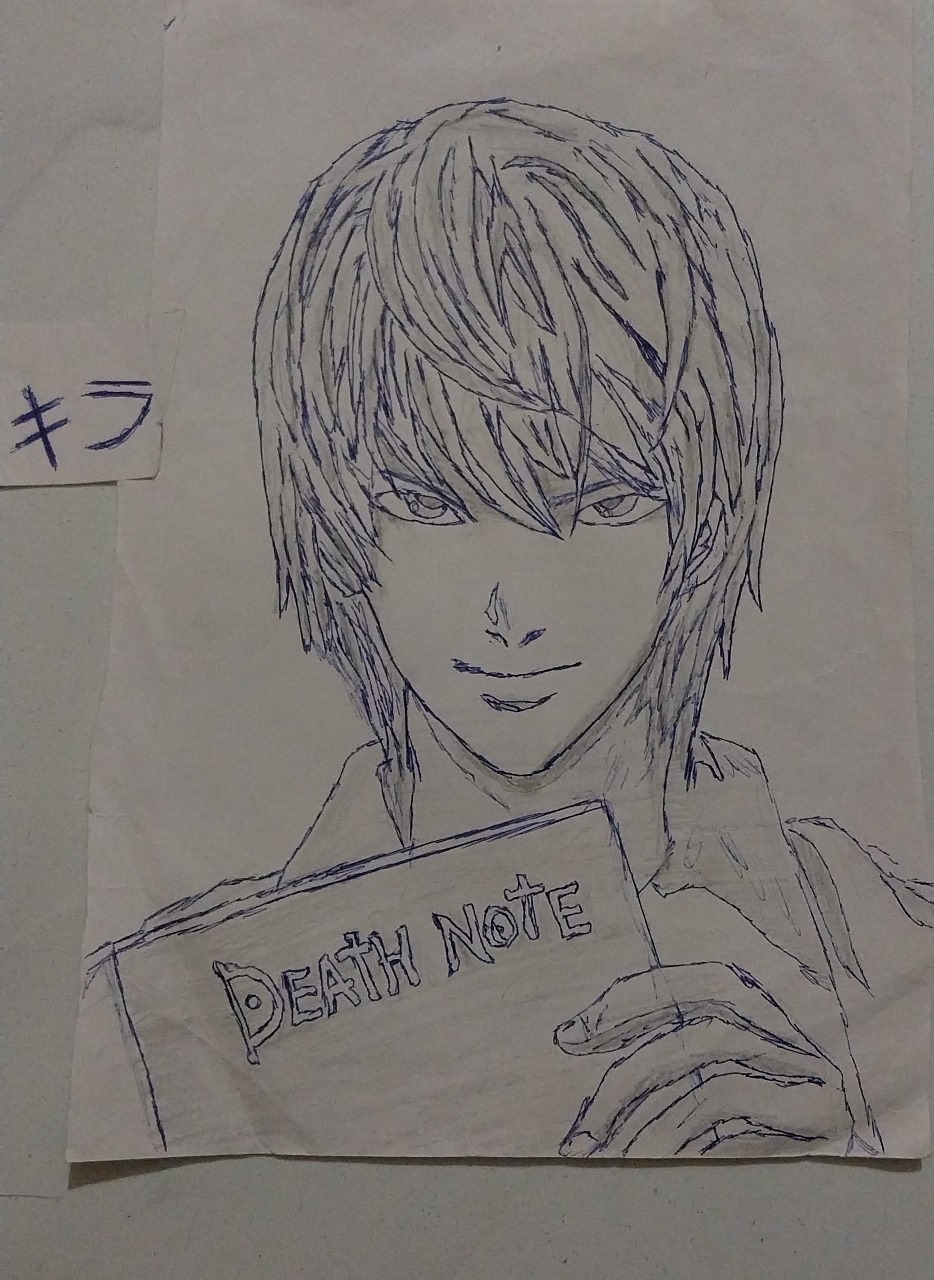 キラ
DEATH NOTE